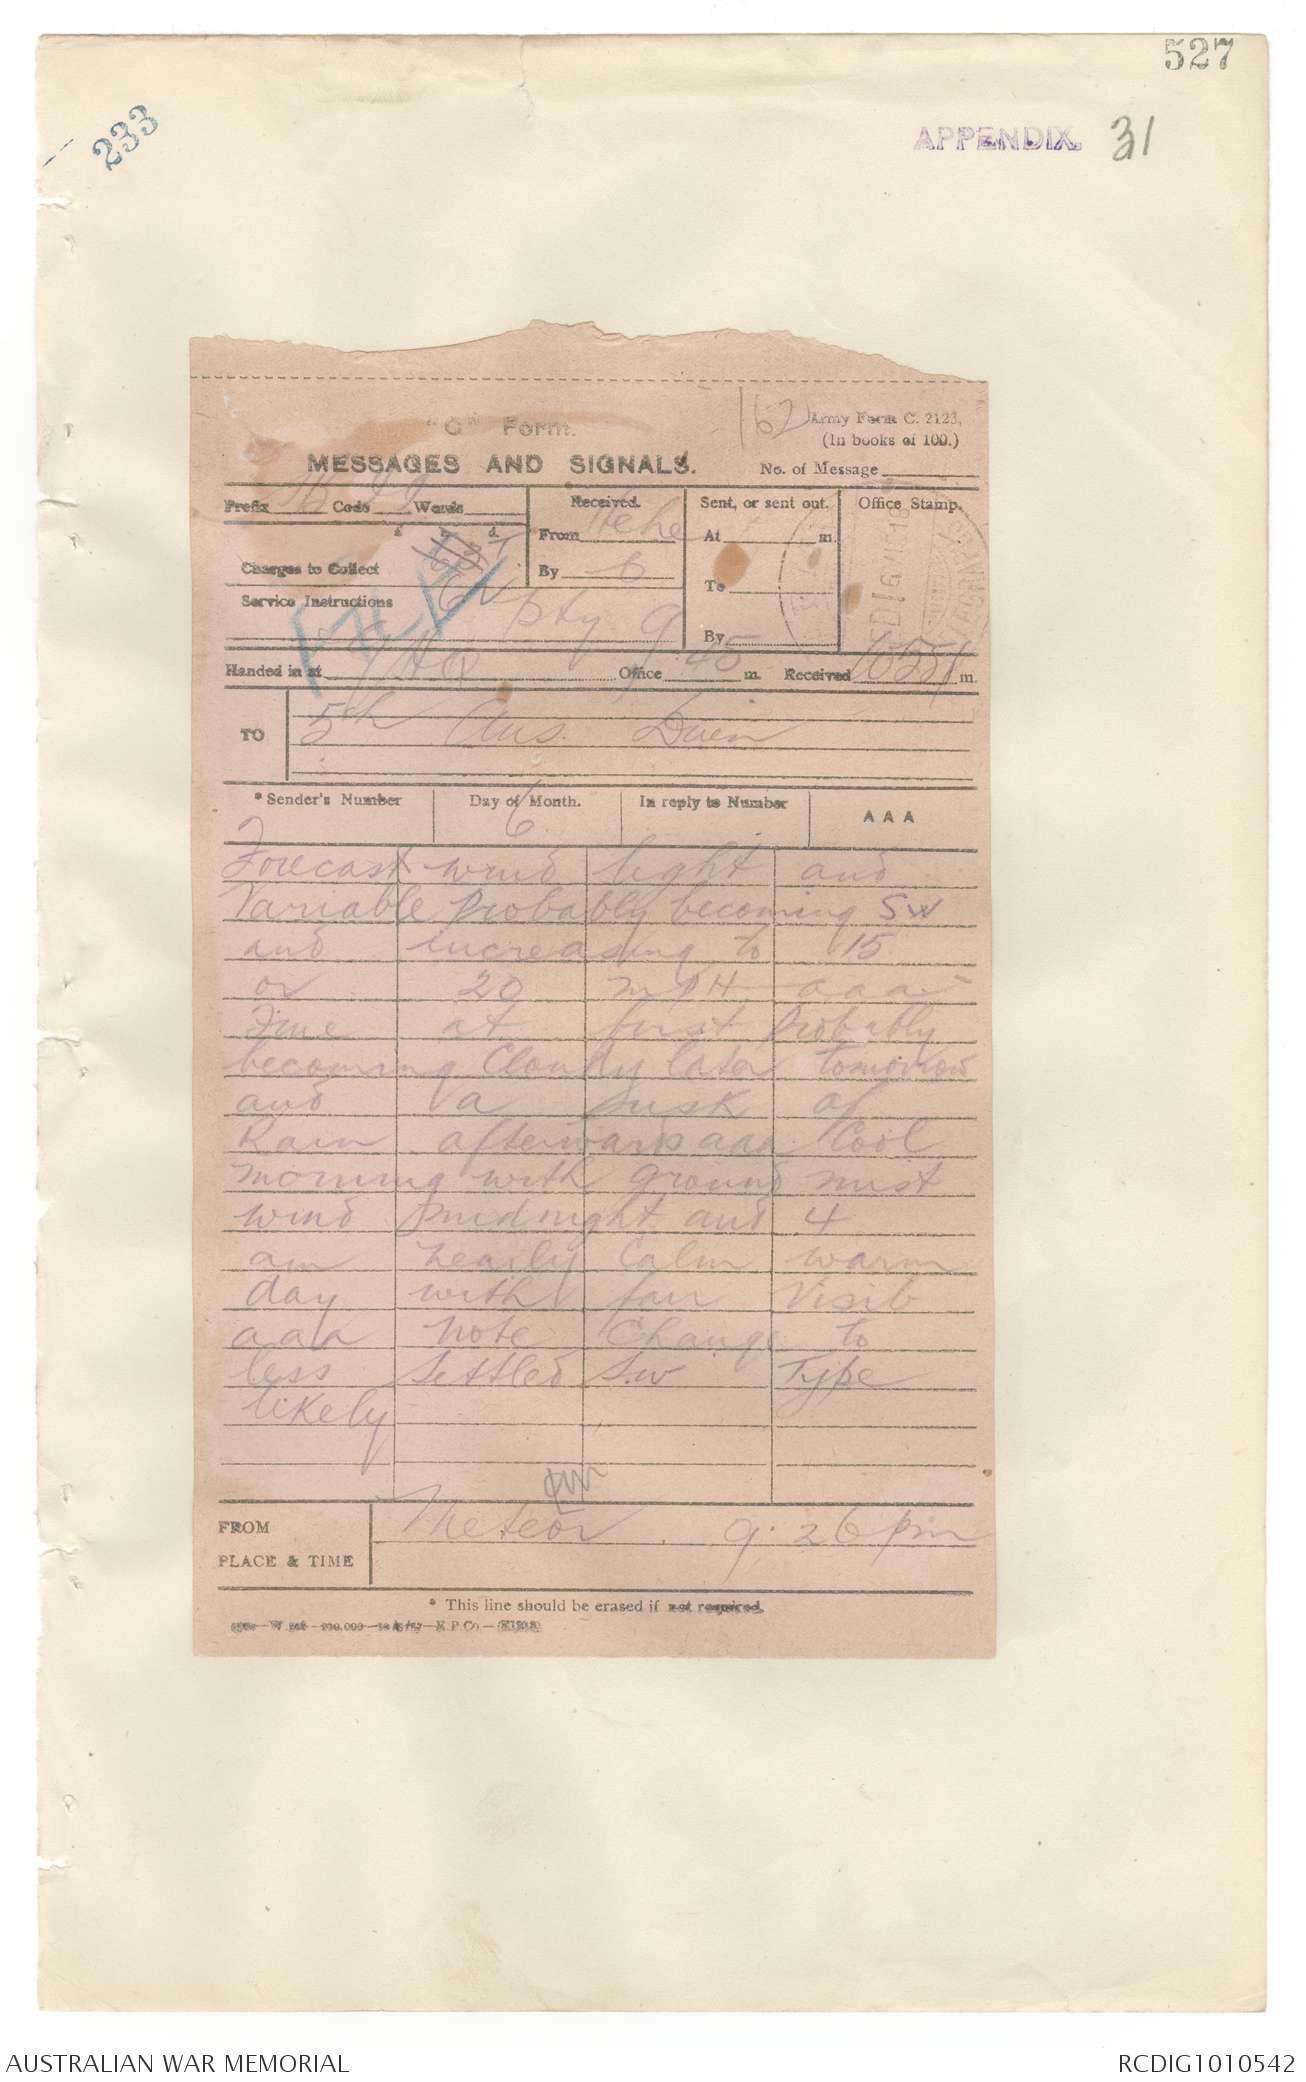 527
233
APPENDIX. 31
"C" Form.
162
Army Form C. 2123.
(In books of 100.)
MESSAGES AND SIGNALS.
No. of Message
Prefix Code Words
Received.
Sent, or sent out.
Office Stamp.
£ s. d.
From
At m.
Charges to Collect
By
To
Service Instructions
Pty 9
By
Handed in at GHQ Office 9.45 m. Received m.
TO 5th Aus. Divn
*Sender's Number Day of Month. In reply to Number AAA
6
Forecast wind light and
Variable Probably becoming SW
and increasing to 15
or 20 MPH aaa
Fine at first Probably
becoming Cloudy later tomorrow
and a risk of
Rain afterwards aaa Cool
morning with ground mist
wind midnight and 4
am nearly Calm warm
day with fair Visib
aaa note Change to
less settled S.W Type
likely
FROM Meteor 9.26pm
PLACE & TIME
* This line should be erased if not required.
AUSTRALIAN WAR MEMORIAL
RCDIG1010542